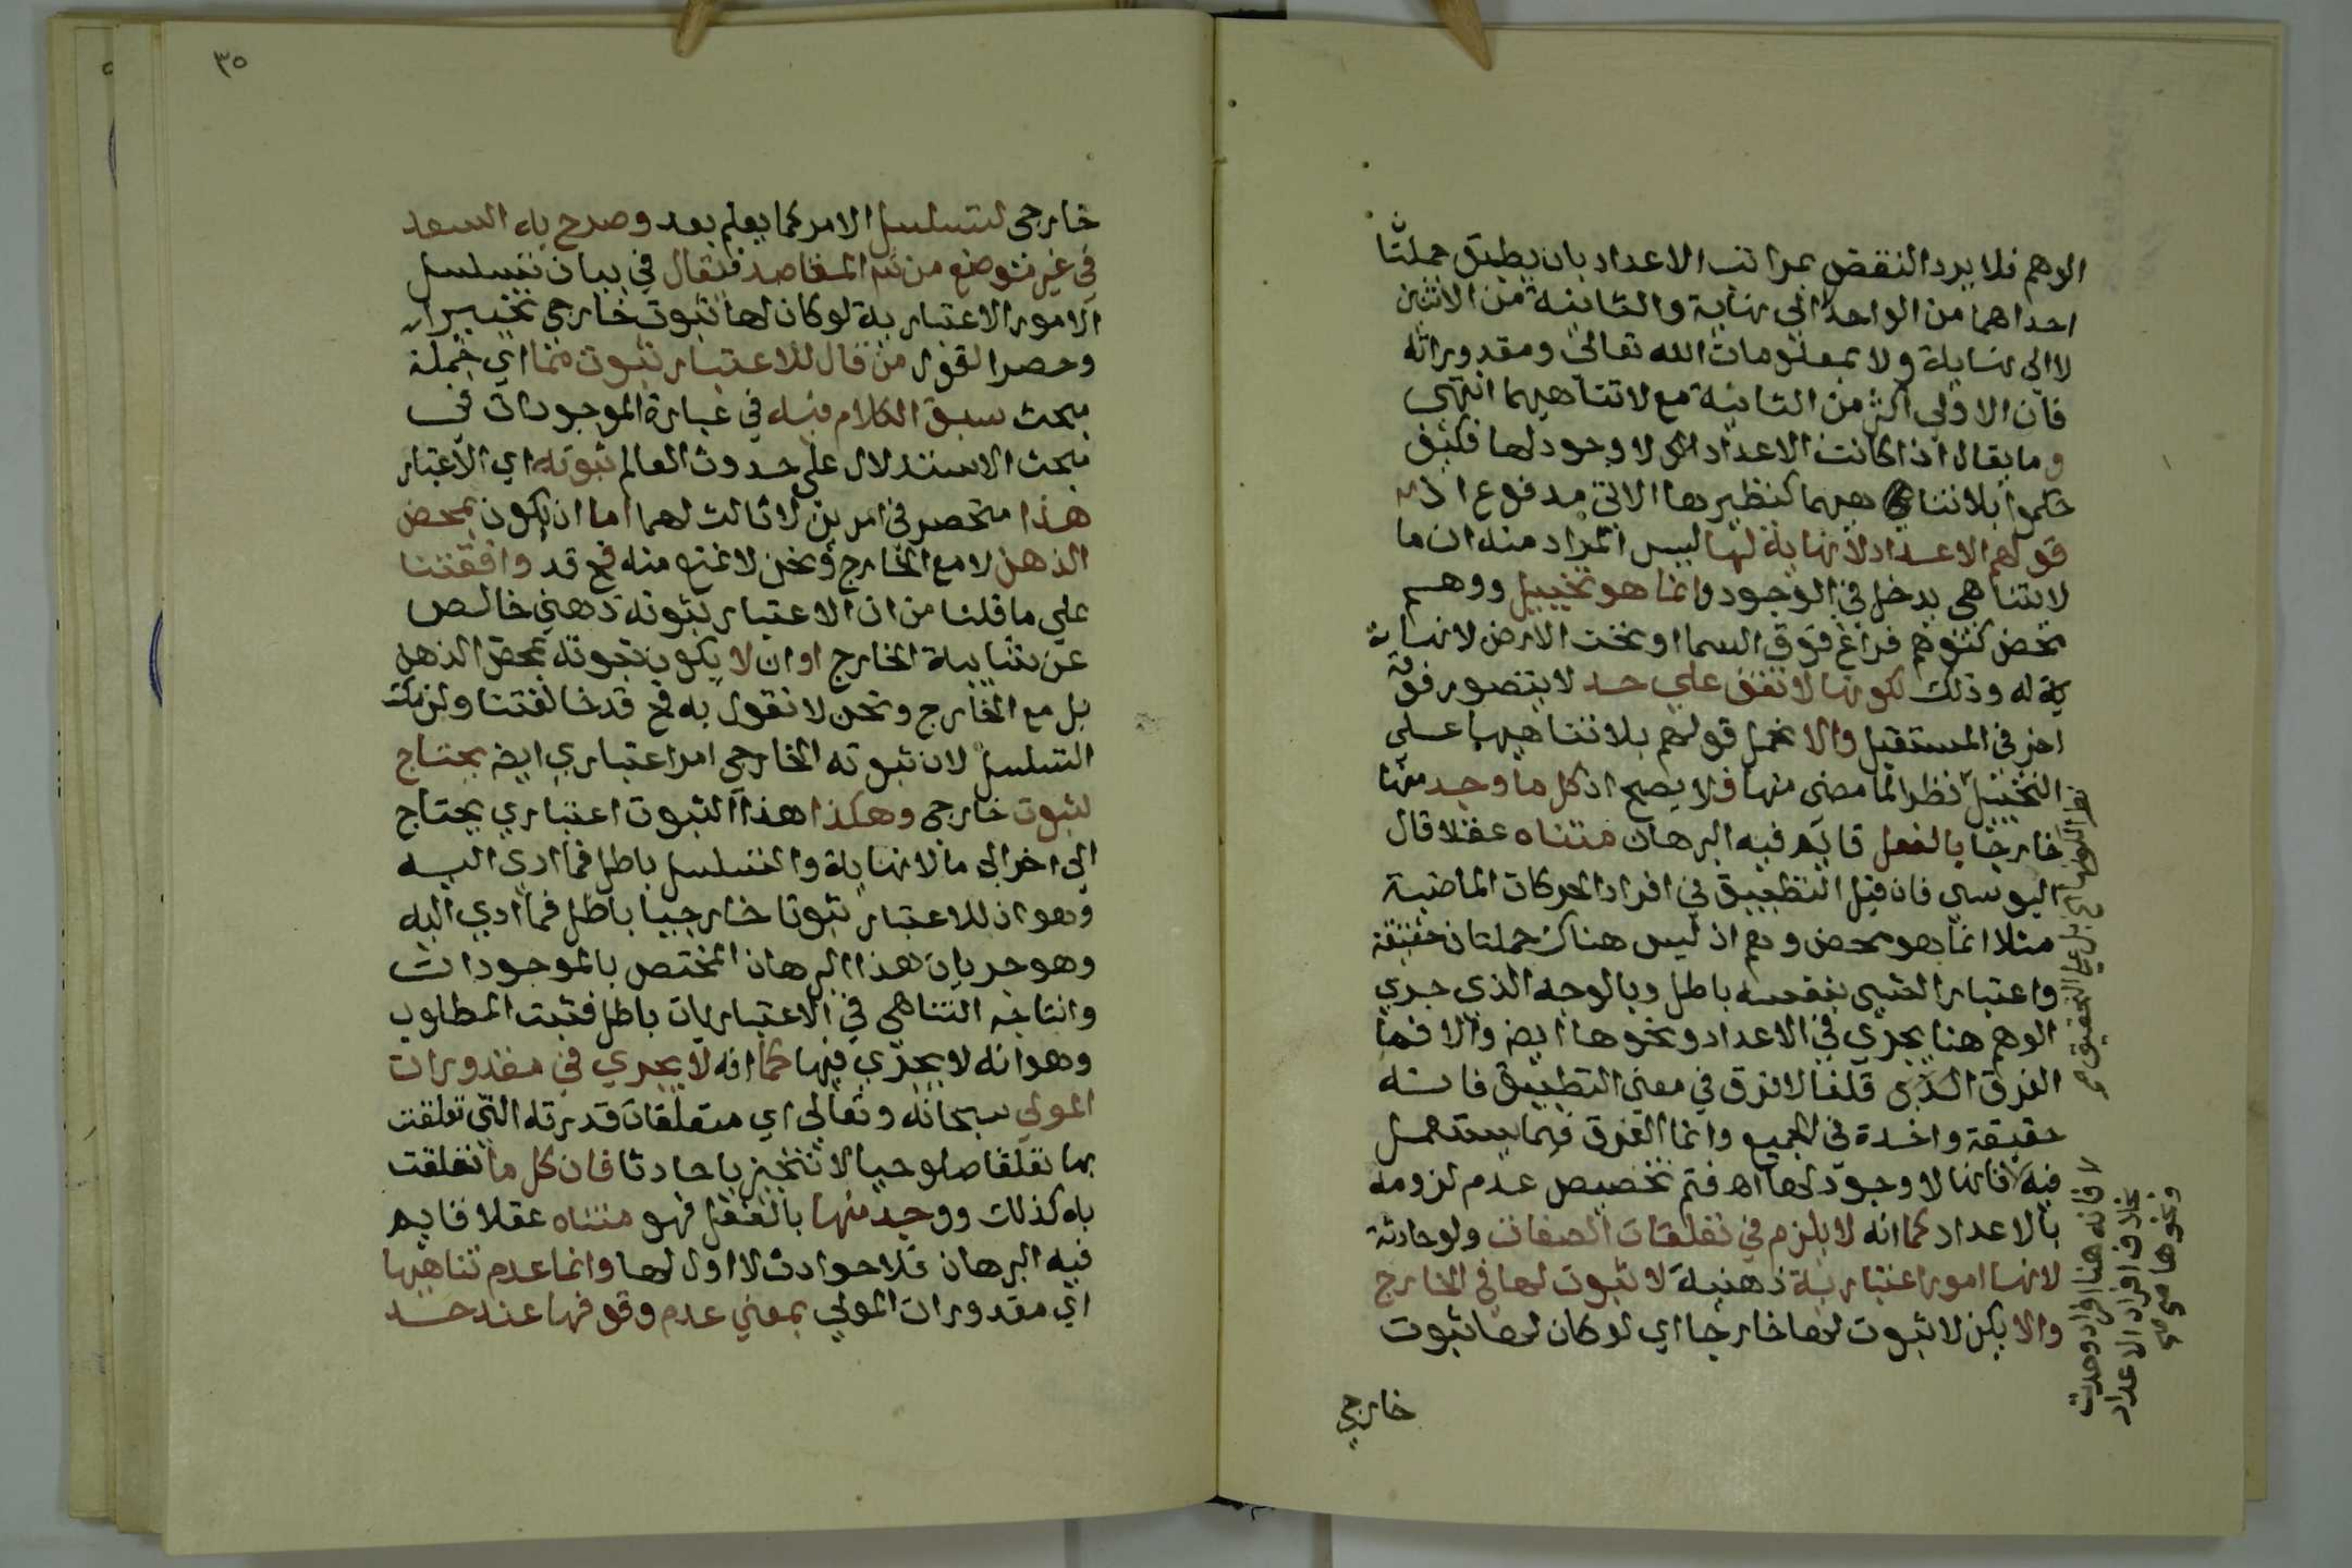 الوهم فلا يرد النقض بمراتب الاعداد بان يطبق جملتا
احداهما من الواحد الى نهاية والثانية من الاثنين
لا الى نهاية ولا بمعلومات الله تعالى ومقدوراته
فان الاولى اكثر من الثانية مع لا تناهيهما انتهى
وما يقال اذا كانت الاعداد لا وجود لها فكيف
حكموا بلا تناهيهما كنظيرها الاتي مدفوع اذ
قولهم الاعداد لا نهاية لها ليس المراد منه ان ما
لا يتناهى يدخل في الوجود وانما هو تخييل ووهم
محض كتوهم فراغ فوق السما او تحت الارض لا نهاية
له وذلك لكونها لا تقف على حد لا يتصور فوقه
اخر في المستقبل والا يحمل قولهم بلا تناهيها على
التخييل نظرا لما مضى منها فلا يصح اذ كل ما وجد منها
خارجا بالفعل قايم فيه البرهان متناه عقلا قال
اليوسي فان قيل التطبيق في افراد الحركات الماضية
مثلا انما هو محض وهم اذ ليس هناك جملتان حقيقة
واعتبار الشيي بنفسه باطل وبالوجه الذي جري
الوهم هنا يجري في الاعداد ونحوها ايضا والا فما
الفرق الذي قلنا لا فرق في معنى التطبيق فانه
حقيقة واحدة في الجميع وانما الفرق فيما يستعمل
فيه فانها لا وجود لها اهـ فتم تخصيص عدم لزومه
بالاعداد كما انه لا يلزم في تعلقات الصفات ولو حادثة
لانها امور اعتبارية ذهنية لا ثبوت لها في الخارج
والا يكن لا ثبوت لها خارجا اي لو كان لها ثبوت
خارجي
بل على التحقيق
لا فانه هنا افراد وجدت
بخلاف افراد الاعداد
ونحوها
٣٥
خارجي لتسلسل الامر كما يعلم بعد وصرح به السعد
في غير موضع من المقاصد فقال في بيان تسلسل
الامور الاعتبارية لو كان لها ثبوت خارجي
وحصر القول من قال للاعتبار ثبوت مما اي جملة
مبحث سبق الكلام فيه في عبارة الموجودات في
مبحث الاستدلال على حدوث العالم ثبوته اي الاعتبار
هذا منحصر في امرين لا ثالث لهما اما ان يكون بمحض
الذهن لا مع الخارج ونحن لا نمنع منه فح قد وافقتنا
على ما قلنا من ان الاعتبار ثبوته ذهني خالص
عن شايبة الخارج او ان لا يكون ثبوته بمحض الذهن
بل مع الخارج ونحن لا نقول به فح قد خالفتنا ولزمك
التسلسل لان ثبوته الخارجي امر اعتباري ايضا يحتاج
لثبوت خارجي وهكذا هذا الثبوت اعتباري يحتاج
الى اخر الى ما لا نهاية والتسلسل باطل فما ادى اليه
وهو ان للاعتبار ثبوتا خارجيا باطل فما ادي اليه
وهو جريان هذا البرهان المختص بالموجودات
وانتاجه التناهي في الاعتباريات باطل فثبت المطلوب
وهو انه لا يجري فيها كما انه لا يجري في مقدورات
المولى سبحانه وتعالى اي متعلقات قدرته التي تعلقت
بها تعلقا صلوحيا لا تنجيزيا حادثا فان كل ما تعلقت
به كذلك ووجد منها بالفعل فهو متناه عقلا قايم
فيه البرهان فلا حوادث لا اول لها وانما عدم تناهيها
اي مقدورات المولى بمعني عدم وقوفها عند حد